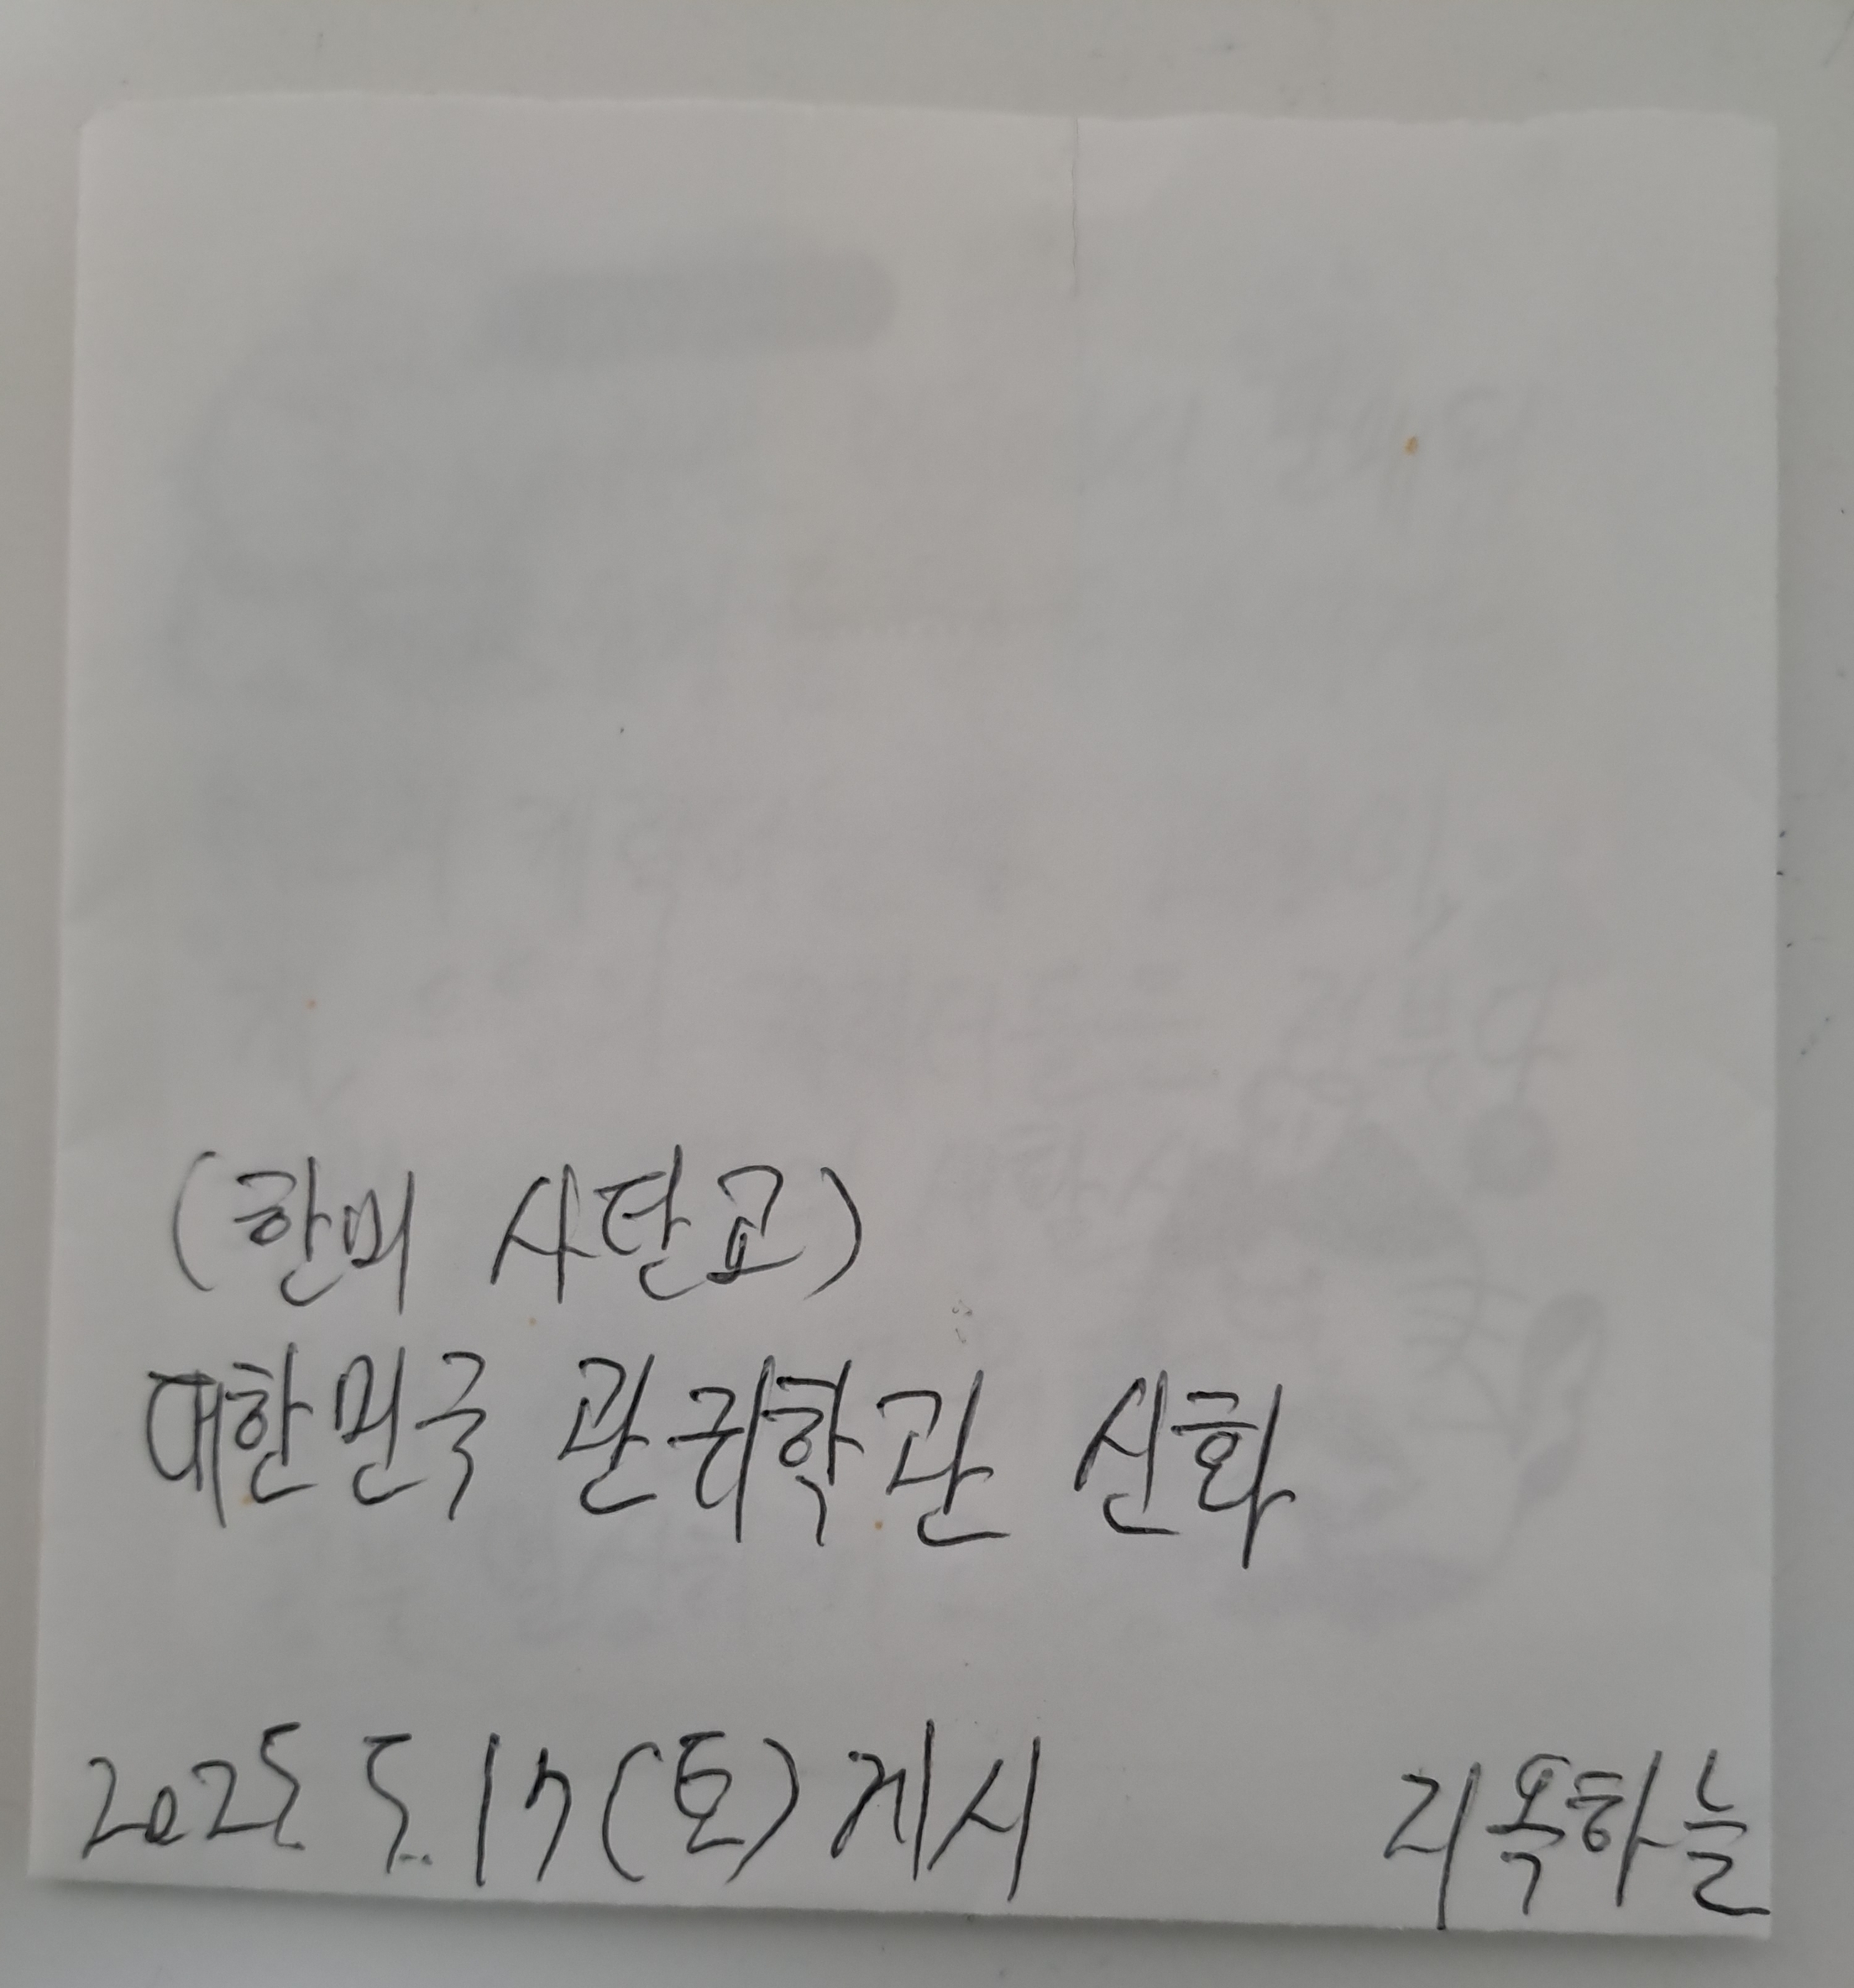 (한미 사단교)
대한민국 관리학관 신화
2025. 5. 17(토) 게시 리옥하늘